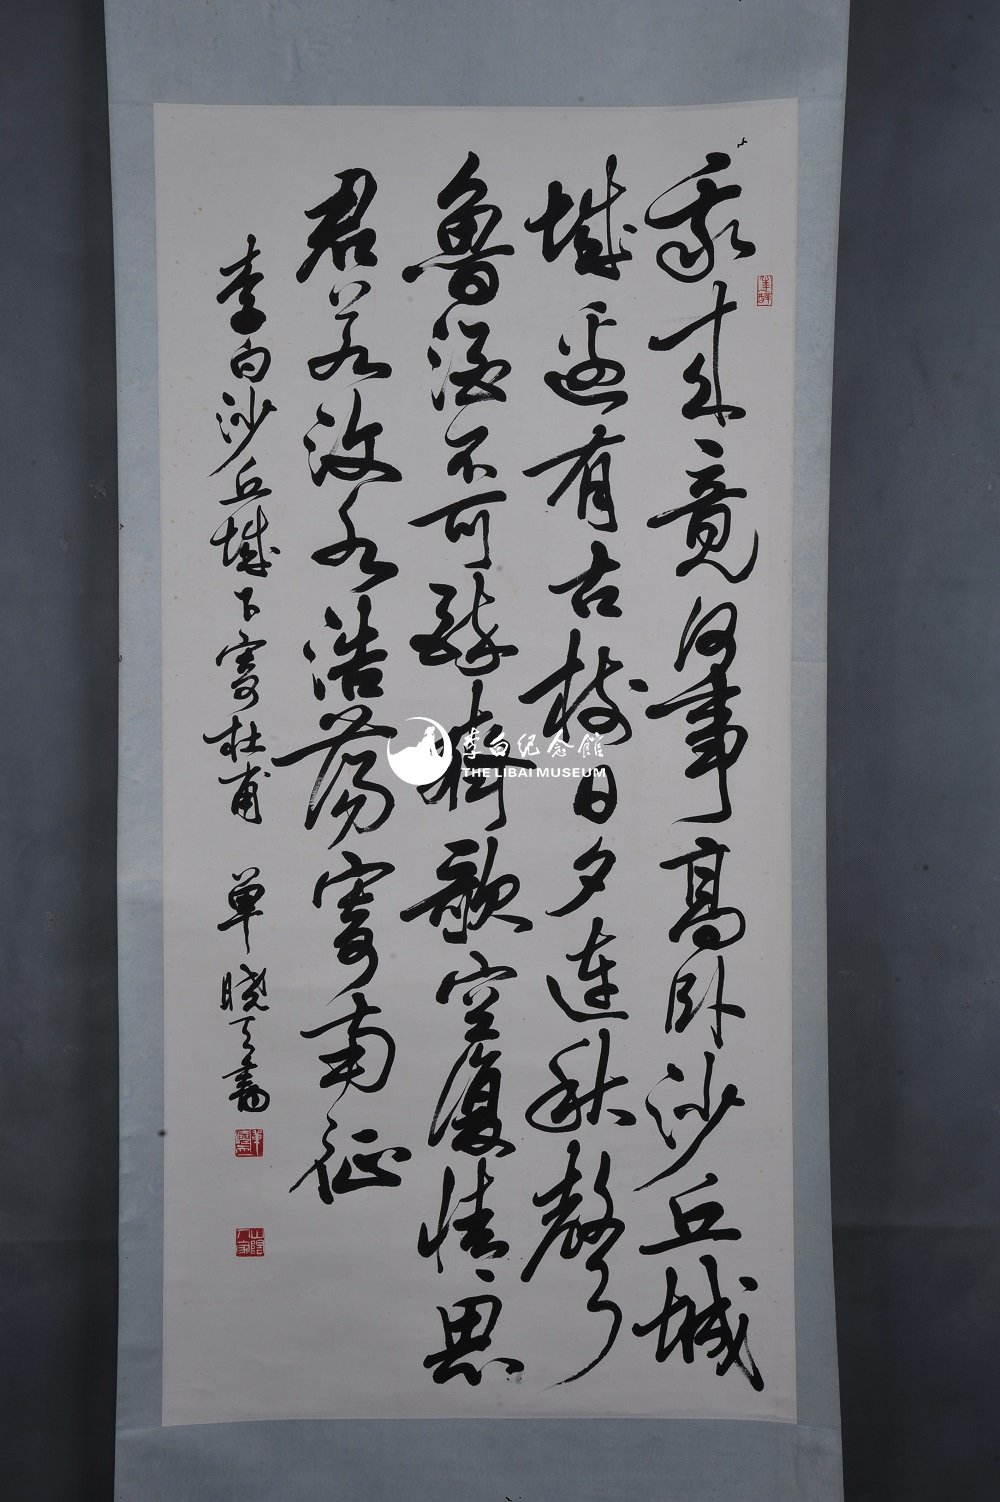 我来竟何事高卧沙丘城
城边有古树日夕连秋声
鲁酒不可醉齐歌空复情思
君若汶水浩荡寄南征
李白沙丘城下寄杜甫 单晓天书
李白纪念馆
THE LIBAI MUSEUM
山阴人家